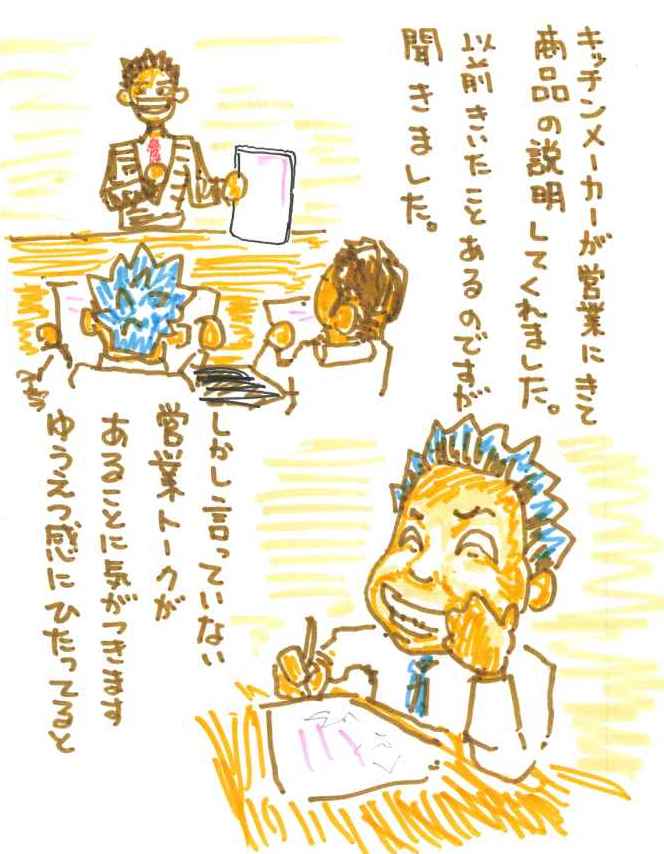 キッチンメーカーが営業にきて
商品の説明してくれました。
以前きいたことあるのですが
聞きました。
しかし言っていない
営業トークが
あることに気がつきます
ゆうえつ感にひたってると